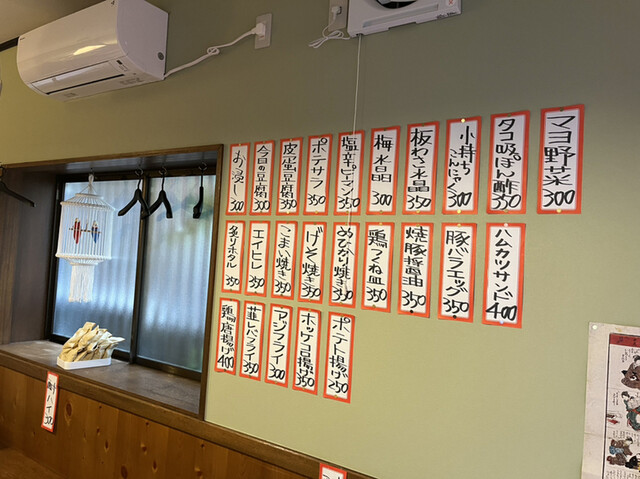 マヨ野菜 300
タコ吸ぽん酢 350
小持ちこんにゃく 300
板わさ水晶 350
梅水晶 300
塩辛ピーマン 350
ポテサラ 350
皮蛋豆腐 350
今日の豆腐 300
お浸し 300
ハムカツサンド 400
豚バラエッグ 350
焼豚醤油 350
鶏つくね皿 350
めひかり焼き 350
げそ焼き 350
こまい焼き 350
エイヒレ 350
炙りホタル 350
ポテト揚げ 250
ホッケ一口揚げ 350
アジフライ 300
韮レバフライ 350
鶏唐揚げ 400